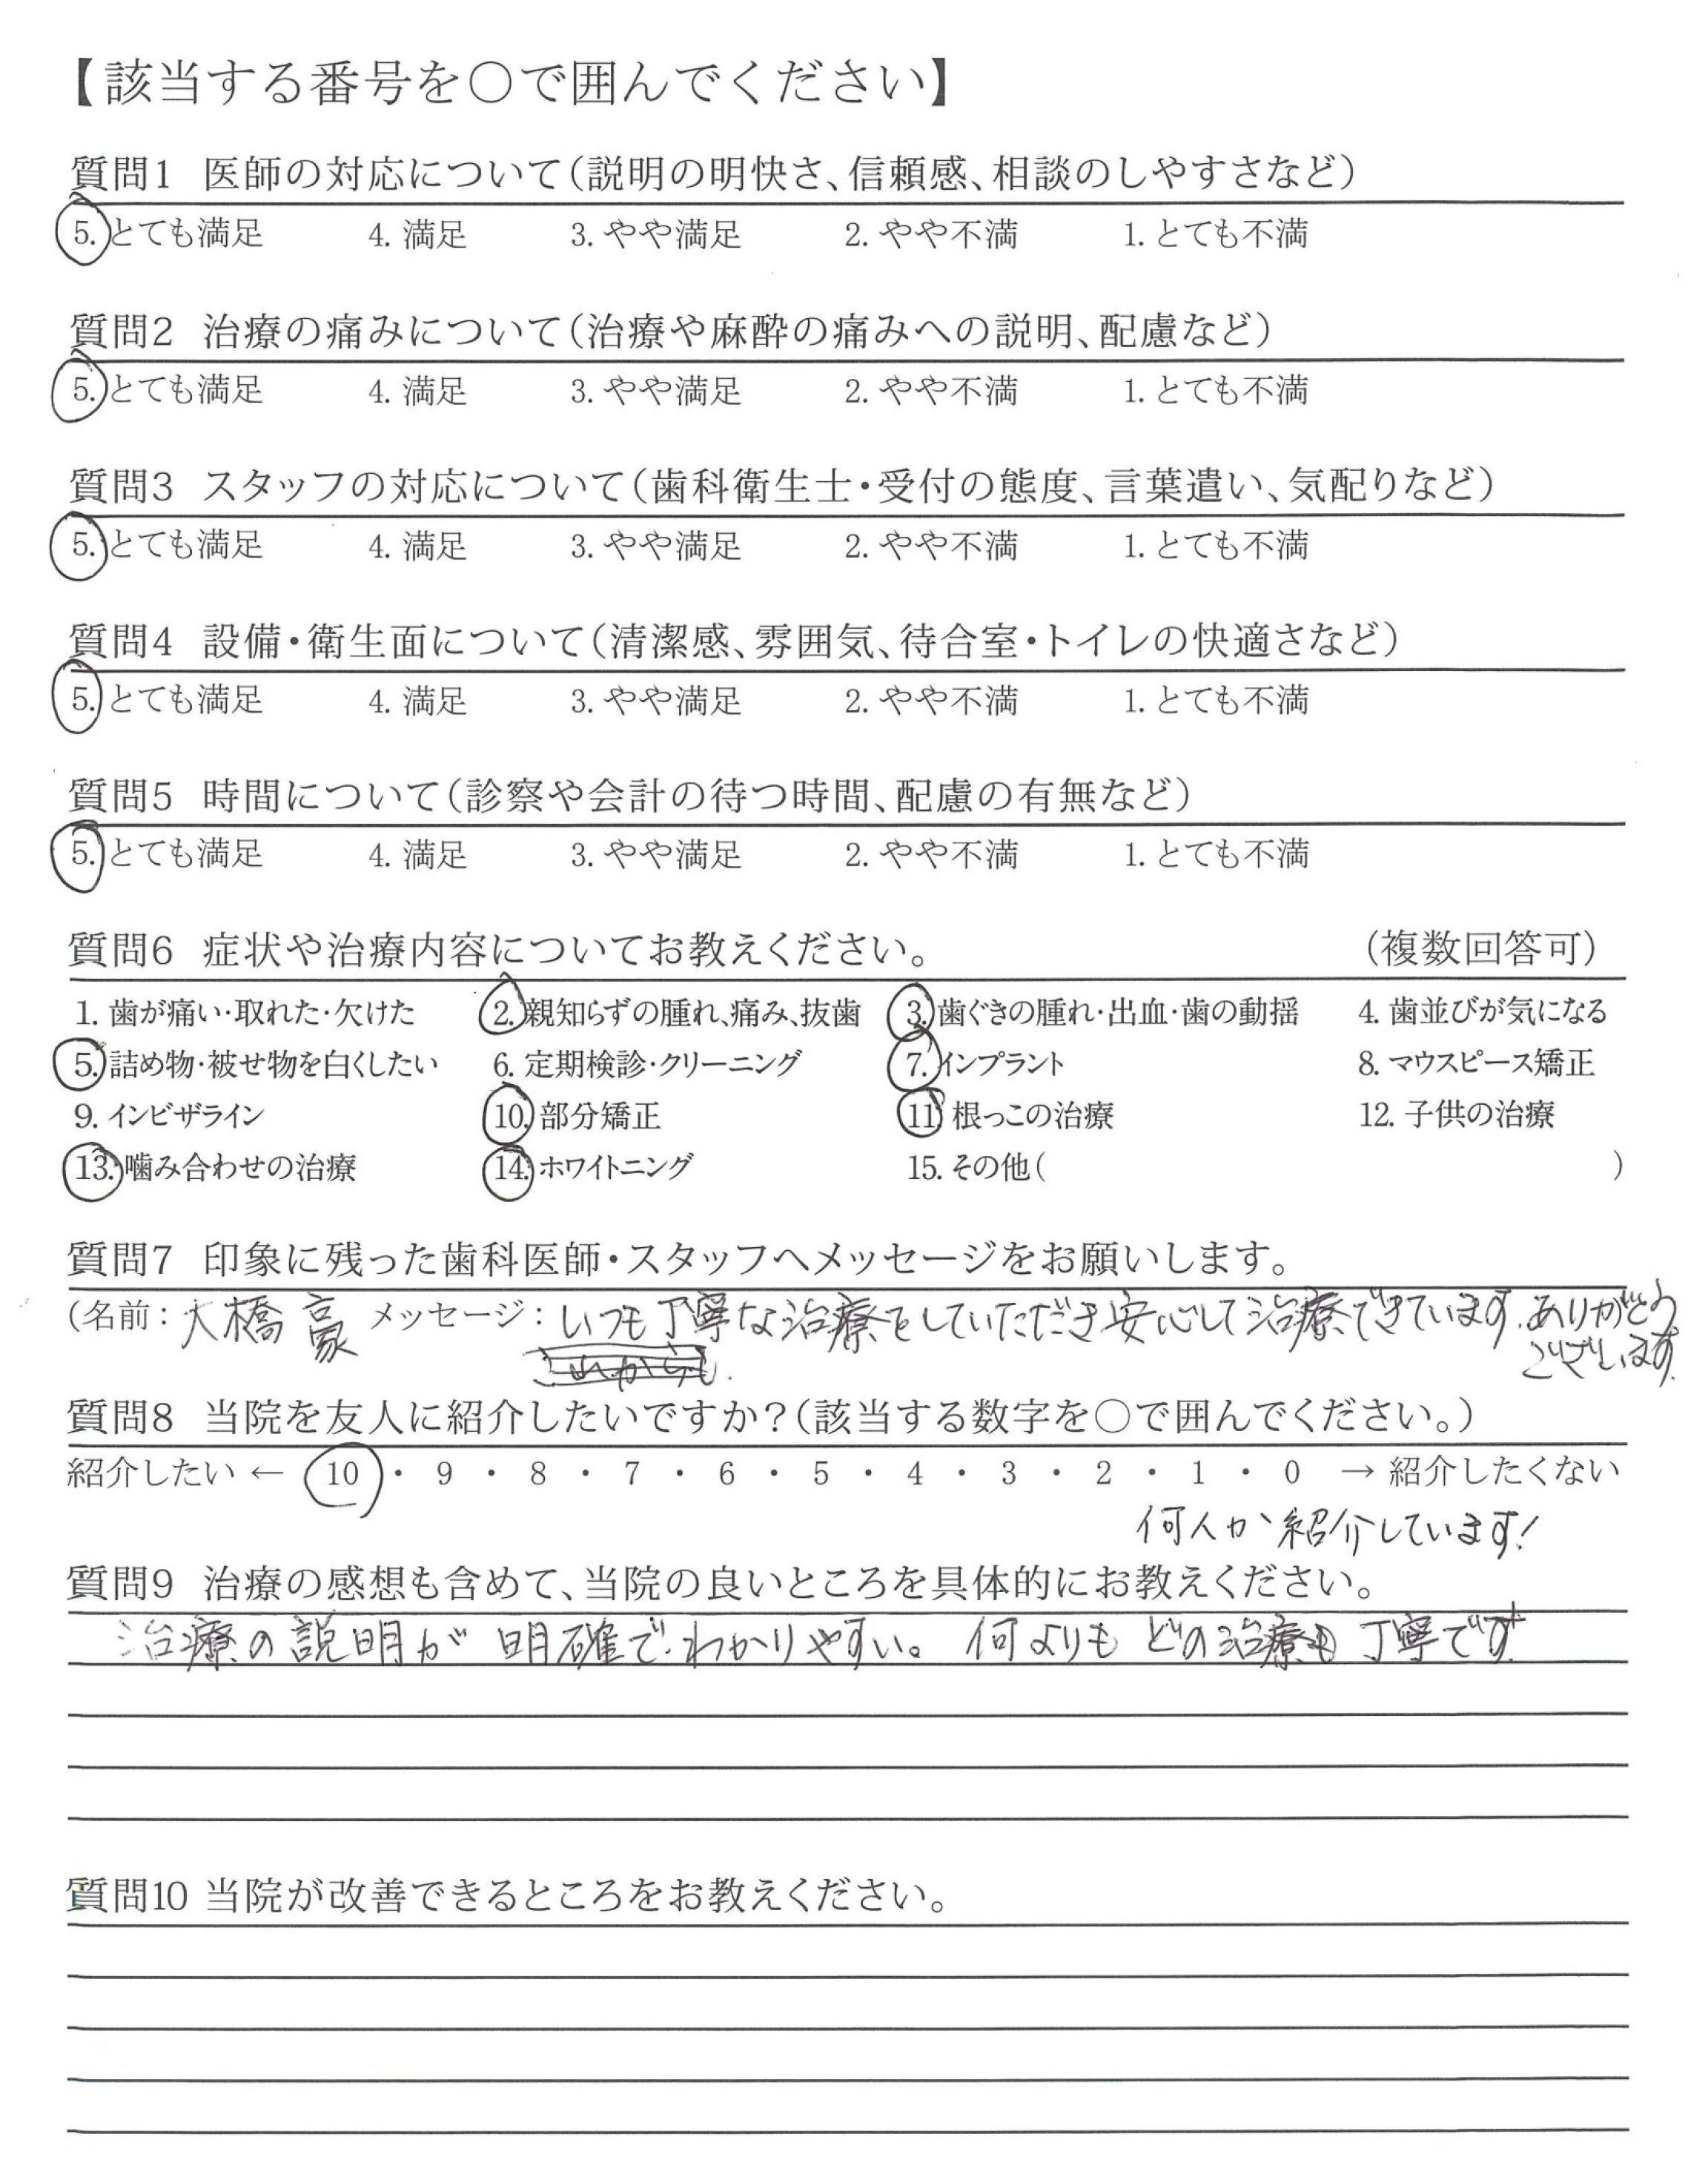 【該当する番号を○で囲んでください】
質問1 医師の対応について(説明の明快さ、信頼感、相談のしやすさなど)
5. とても満足 4. 満足 3. やや満足 2. やや不満 1. とても不満
質問2 治療の痛みについて(治療や麻酔の痛みへの説明、配慮など)
5. とても満足 4. 満足 3. やや満足 2. やや不満 1. とても不満
質問3 スタッフの対応について(歯科衛生士・受付の態度、言葉遣い、気配りなど)
5. とても満足 4. 満足 3. やや満足 2. やや不満 1. とても不満
質問4 設備・衛生面について(清潔感、雰囲気、待合室・トイレの快適さなど)
5. とても満足 4. 満足 3. やや満足 2. やや不満 1. とても不満
質問5 時間について(診察や会計の待つ時間、配慮の有無など)
5. とても満足 4. 満足 3. やや満足 2. やや不満 1. とても不満
質問6 症状や治療内容についてお教えください。 (複数回答可)
1. 歯が痛い・取れた・欠けた 2. 親知らずの腫れ、痛み、抜歯 3. 歯ぐきの腫れ・出血・歯の動揺 4. 歯並びが気になる
5. 詰め物・被せ物を白くしたい 6. 定期検診・クリーニング 7. インプラント 8. マウスピース矯正
9. インビザライン 10. 部分矯正 11. 根っこの治療 12. 子供の治療
13. 噛み合わせの治療 14. ホワイトニング 15. その他( )
質問7 印象に残った歯科医師・スタッフへメッセージをお願いします。
(名前：大橋 豪 メッセージ：いつも丁寧な治療をしていただき安心して治療できています。ありがとう
これからも ございます。
質問8 当院を友人に紹介したいですか？(該当する数字を○で囲んでください。)
紹介したい ← 10 ・ 9 ・ 8 ・ 7 ・ 6 ・ 5 ・ 4 ・ 3 ・ 2 ・ 1 ・ 0 → 紹介したくない
何人か紹介しています！
質問9 治療の感想も含めて、当院の良いところを具体的にお教えください。
治療の説明が明確でわかりやすい。何よりもどの治療も丁寧です
質問10 当院が改善できるところをお教えください。